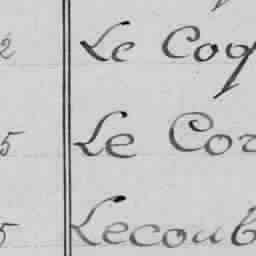 2 Le Coq
5 Le Cor
5 Lecoub